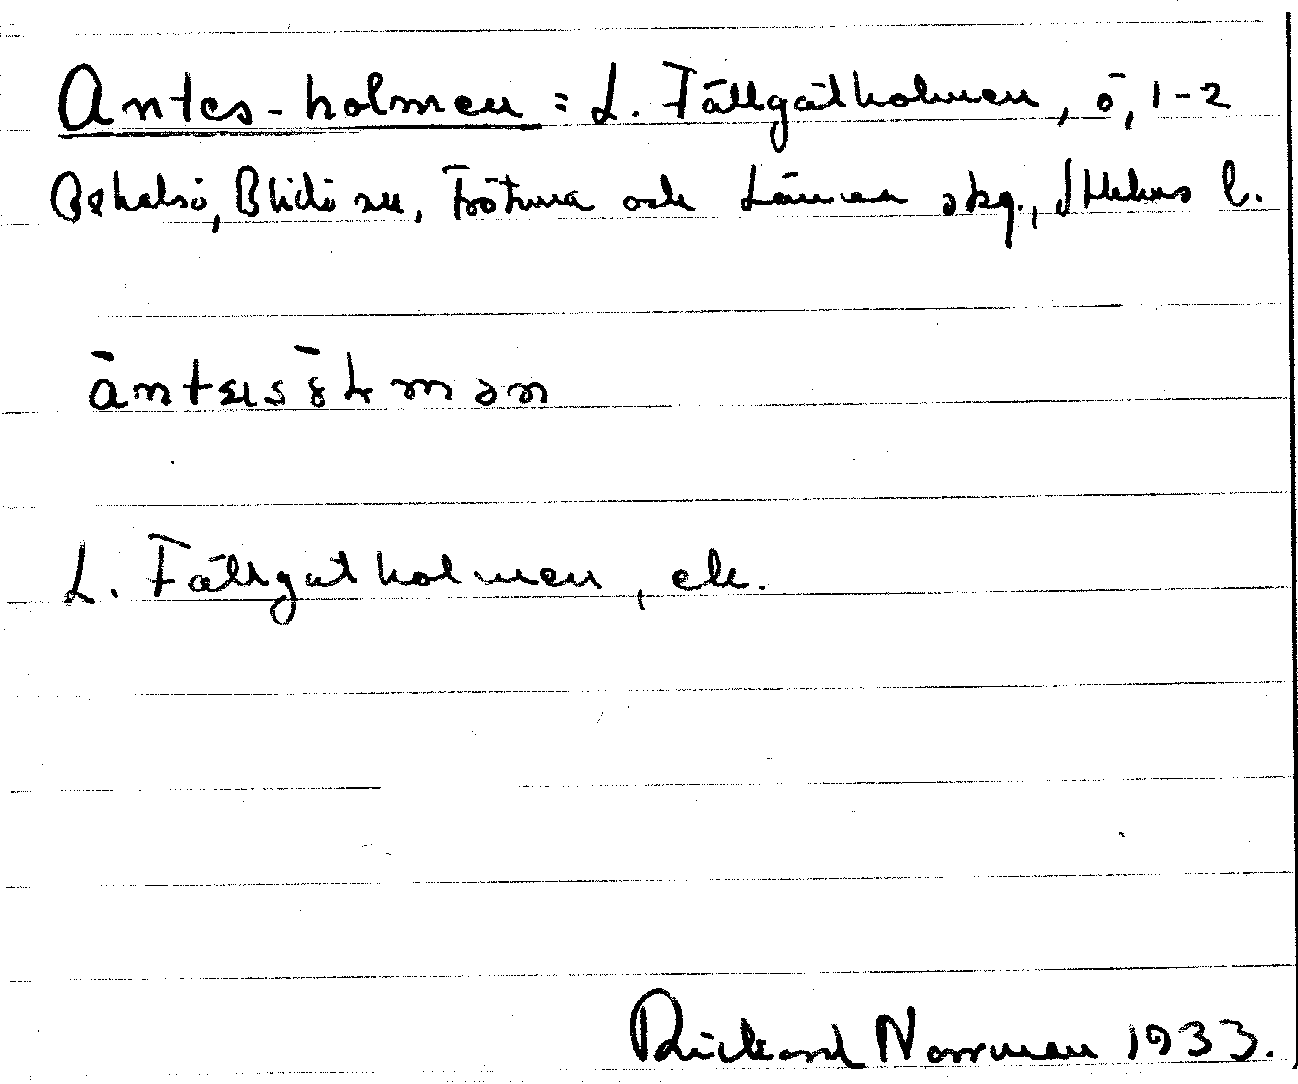 Antes-holmen = L. Fällgatholmen, ö, 1-2
Blidö sn, Frötuna och Länna skg., Sthlms l.
L. Fällgatholmen, ek.
Rickard Norrman 1933.